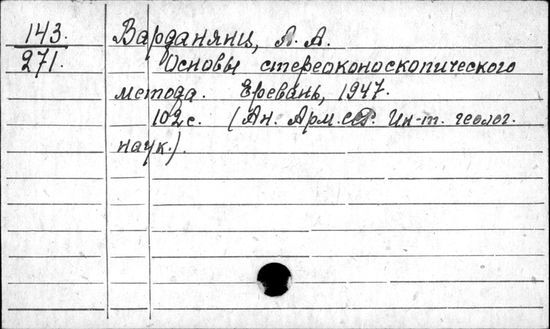 143. Варданянц, Л. А.
271. Основы стереоконоскопического
метода. Ереван, 1947.
102 с. (Ан. Арм. ССР. Ин-т. геолог.
наук.).